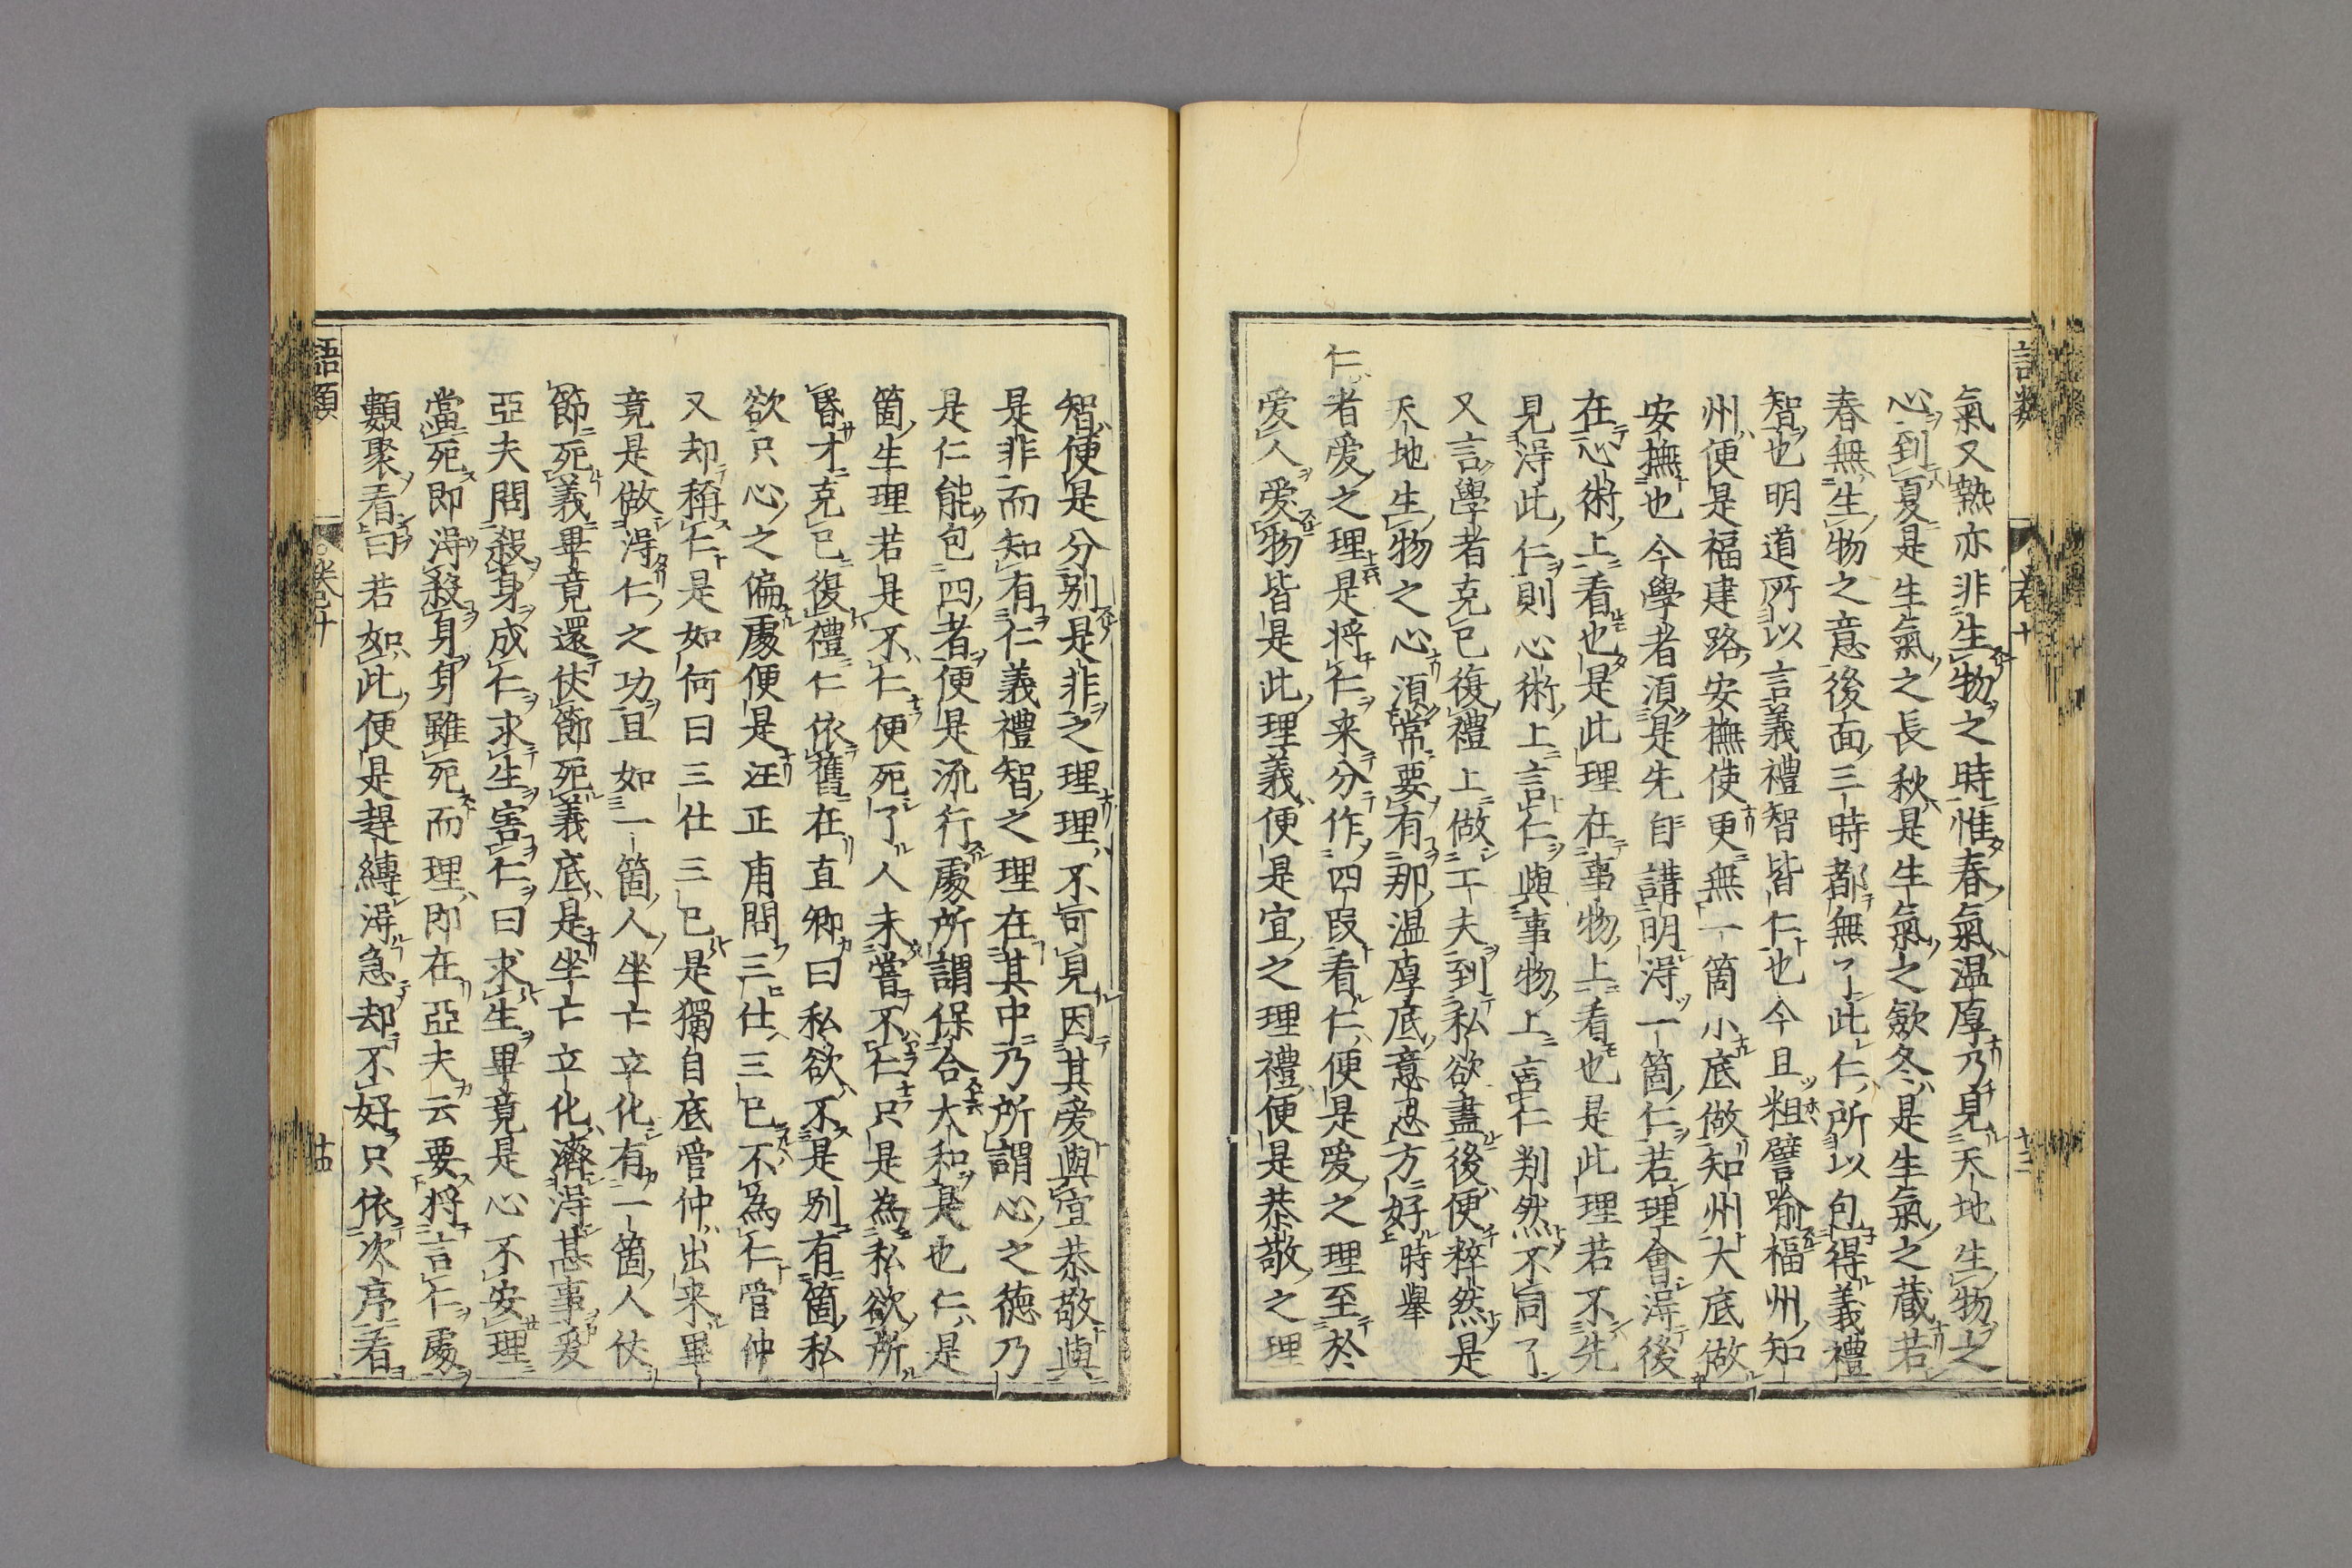 語類
卷十
十三
氣又熱亦非生物之時惟春氣温厚乃見天地生物之
心到夏是生氣之長秋是生氣之斂冬是生氣之藏若
春無生物之意後面三時都無了此仁所以包得義禮
智也明道所以言義禮智皆仁也今且粗譬喻福州知
州便是福建路安撫使更無一箇小底做知州大底做
安撫也今學者須是先自講明得一箇仁若理會得後
在心術上看也是此理在事物上看也是此理若不先
見得此仁則心術上言仁與事物上言仁判然不同了
又言學者克己復禮上做工夫到私欲盡後便粹然是
天地生物之心須常要有那温厚底意思方好時舉
仁者愛之理是将仁来分作四段看仁便是愛之理至於
愛人愛物皆是此理義便是宜之理禮便是恭敬之理
智便是分别是非之理理不可見因其爱與宜恭敬與
是非而知有仁義禮智之理在其中乃所謂心之德乃
是仁能包四者便是流行處所謂保合太和是也仁是
箇生理若是不仁便死了人未嘗不仁只是為私欲所
昬才克己復禮仁依舊在直卿曰私欲不是别有箇私
欲只心之偏處便是汪正甫問三仕三已不為仁管仲
又却稱仁是如何曰三仕三已是獨自底管仲出来畢
竟是做得仁之功且如一箇人坐亡立化有一箇人仗
節死義畢竟還仗節死義底是坐亡立化濟得甚事爰
亞夫問殺身成仁求生害仁曰求生畢竟是心不安理
當死即得殺身身雖死而理即在亞夫云要将言仁處
類聚看曰若如此便是趕縛得急却不好只依次序看
語類
卷十